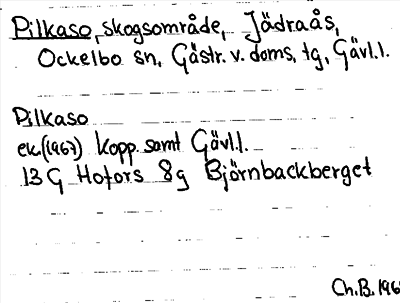 Pilkaso, skogsområde, Jädraås,
Ockelbo sn, Gästr. v. doms. tg, Gävl.l.
Pilkaso
ek.(1967) Kopp. samt Gävl.l.
13 G Hofors 8g Björnbackberget
Ch.B. 196